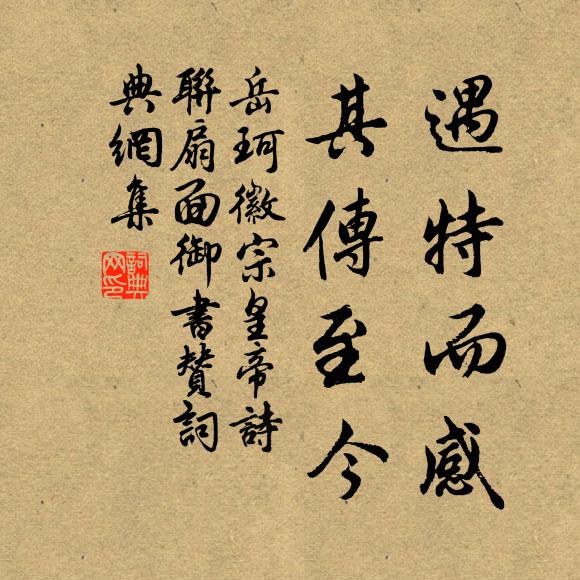 遇特而感
其傳至今
岳珂徽宗皇帝詩
聯扇面御書贊詞
典網集
詞典网印